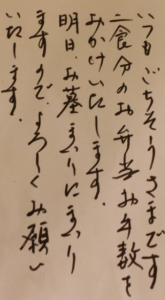 いつもごちそうさまです
二食分のお弁当お手数を
おかけいたします。
明日、お墓まいりにまいり
ますので、よろしくお願い
いたします。